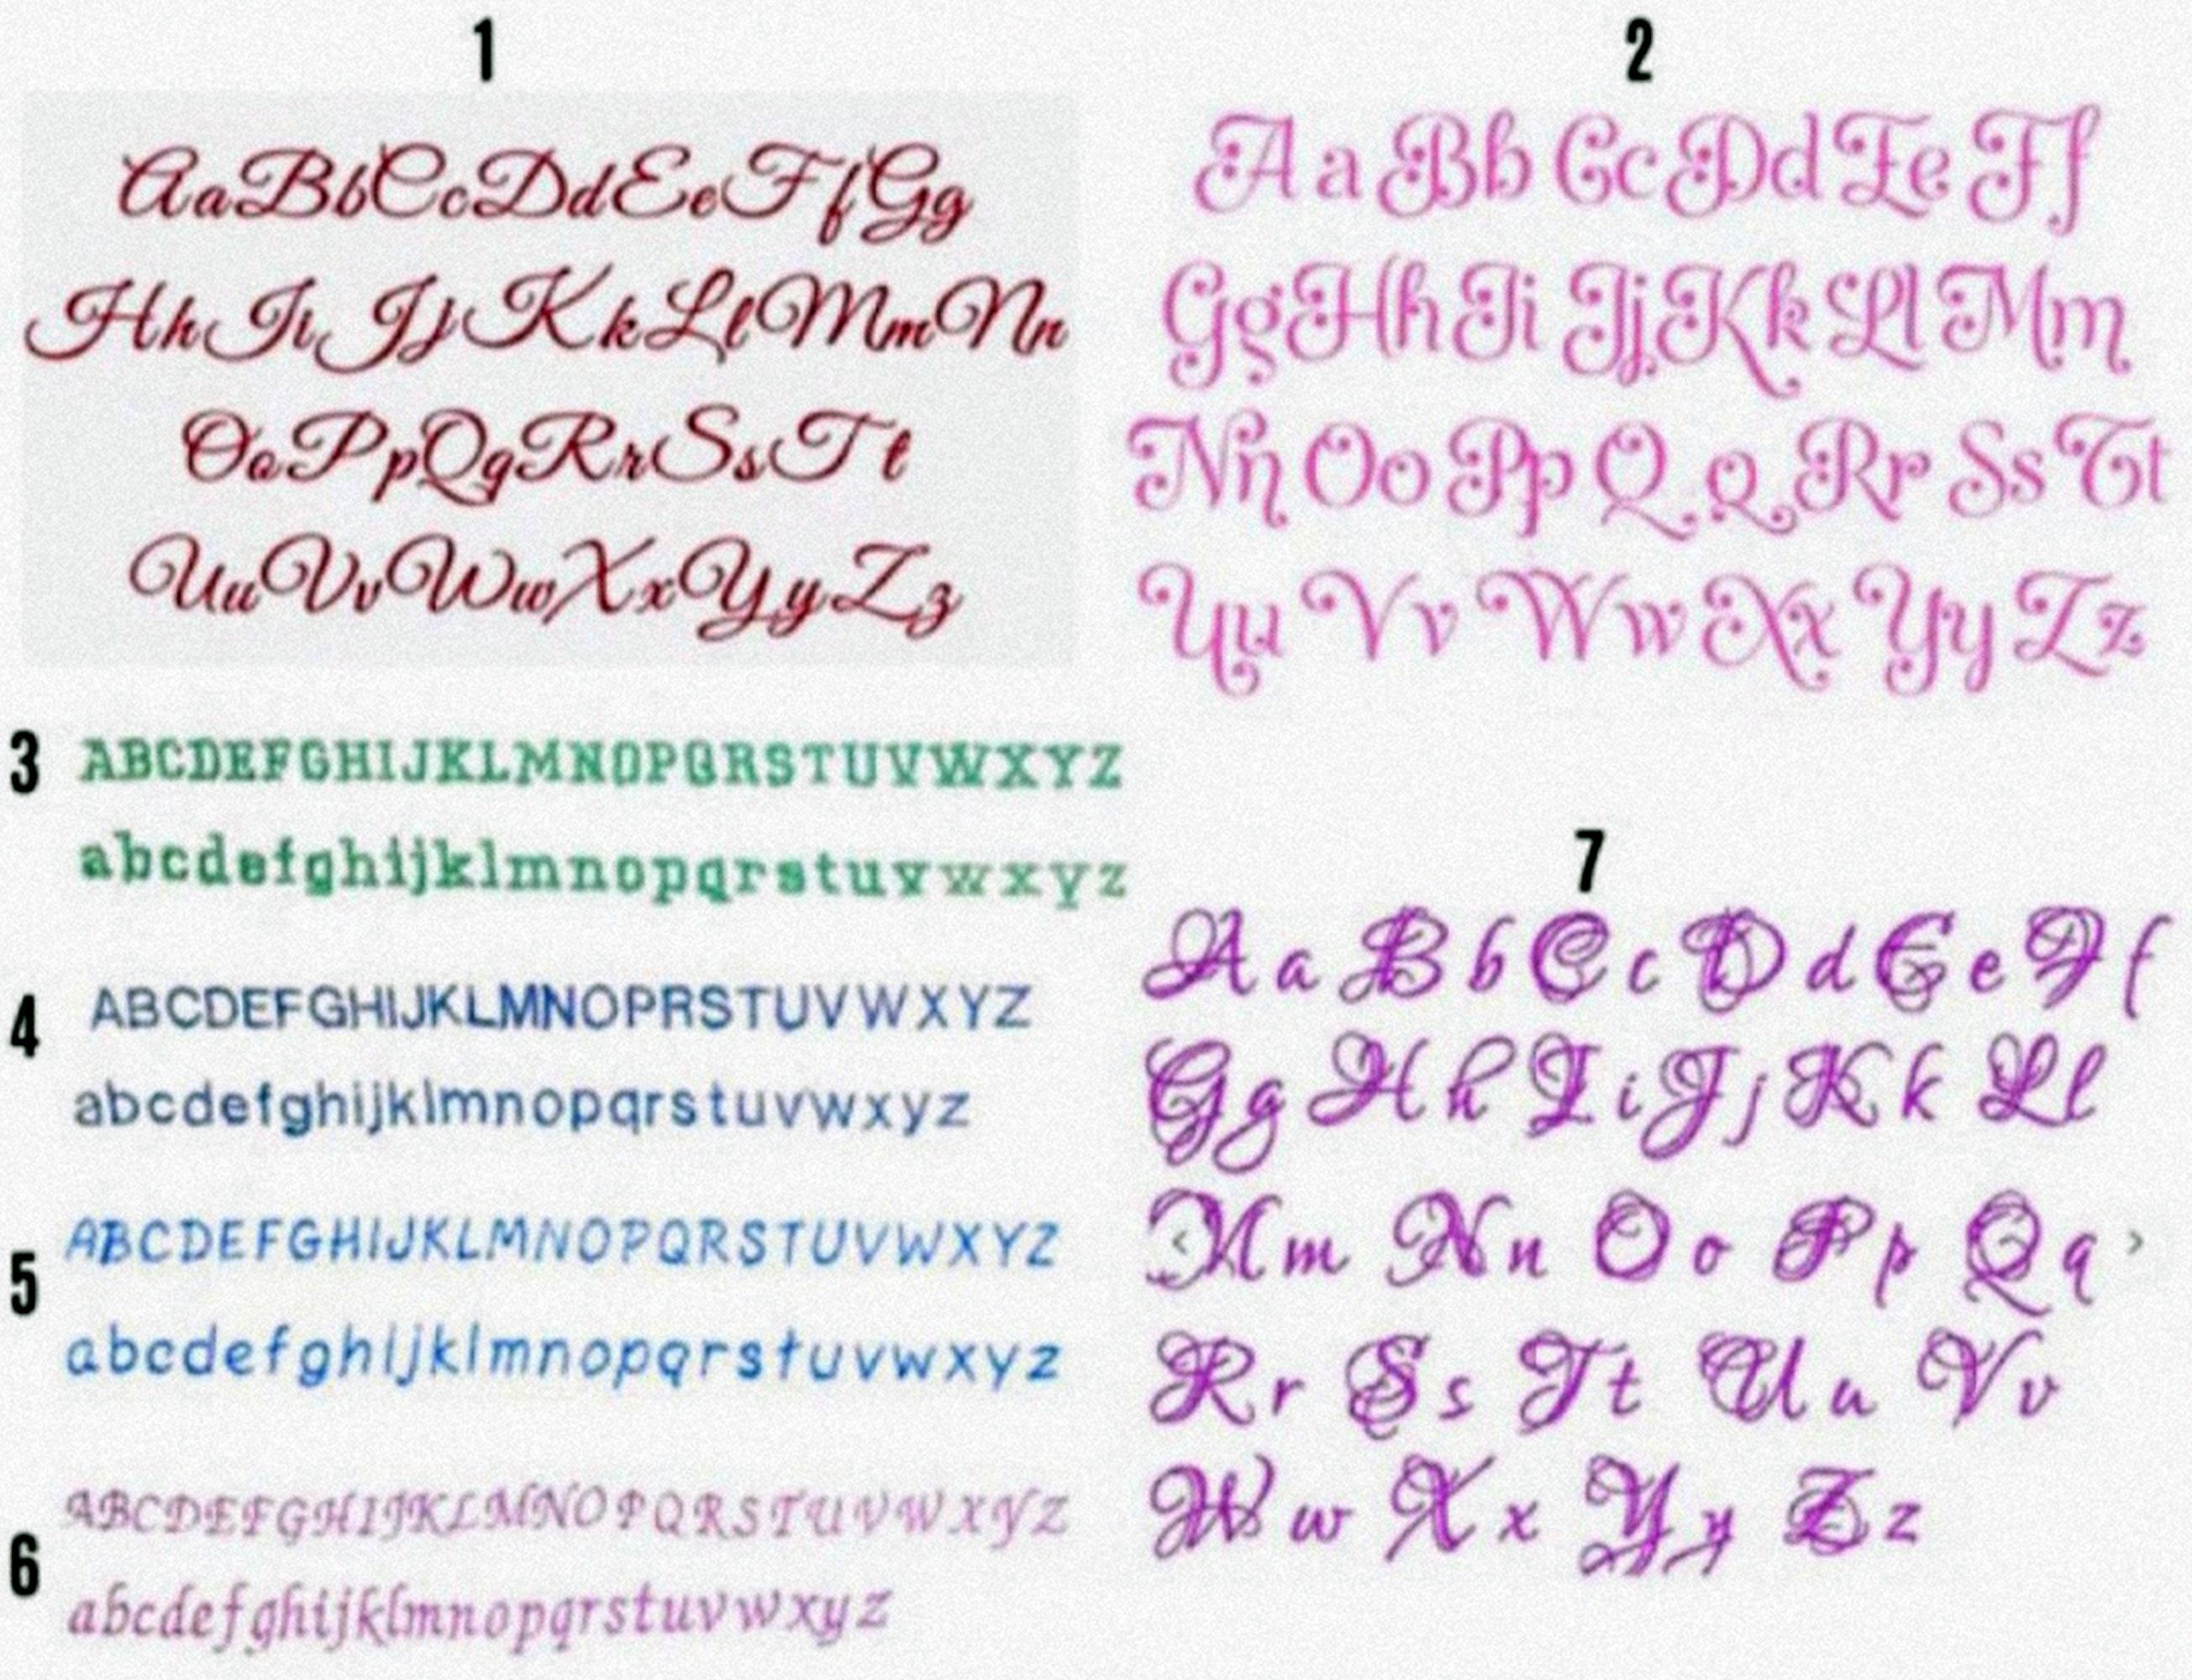 1
AaBbCcDdEeFfGg
HhIiJjKkLlMmNn
OoPpQqRrSsTt
UuVvWwXxYyZz
2
Aa Bb Cc Dd Ee Ff
Gg Hh Ii Jj Kk Ll Mm
Nn Oo Pp Qq Rr Ss Tt
Uu Vv Ww Xx Yy Zz
3
ABCDEFGHIJKLMNOPQRSTUVWXYZ
abcdefghijklmnopqrstuvwxyz
4
ABCDEFGHIJKLMNOPRSTUVWXYZ
abcdefghijklmnopqrstuvwxyz
5
ABCDEFGHIJKLMNOPQRSTUVWXYZ
abcdefghijklmnopqrstuvwxyz
6
ABCDEFGHIJKLMNOPQRSTUVWXYZ
abcdefghijklmnopqrstuvwxyz
7
Aa Bb Cc Dd Ee Ff
Gg Hh Ii Jj Kk Ll
Mm Nn Oo Pp Qq
Rr Ss Tt Uu Vv
Ww Xx Yy Zz